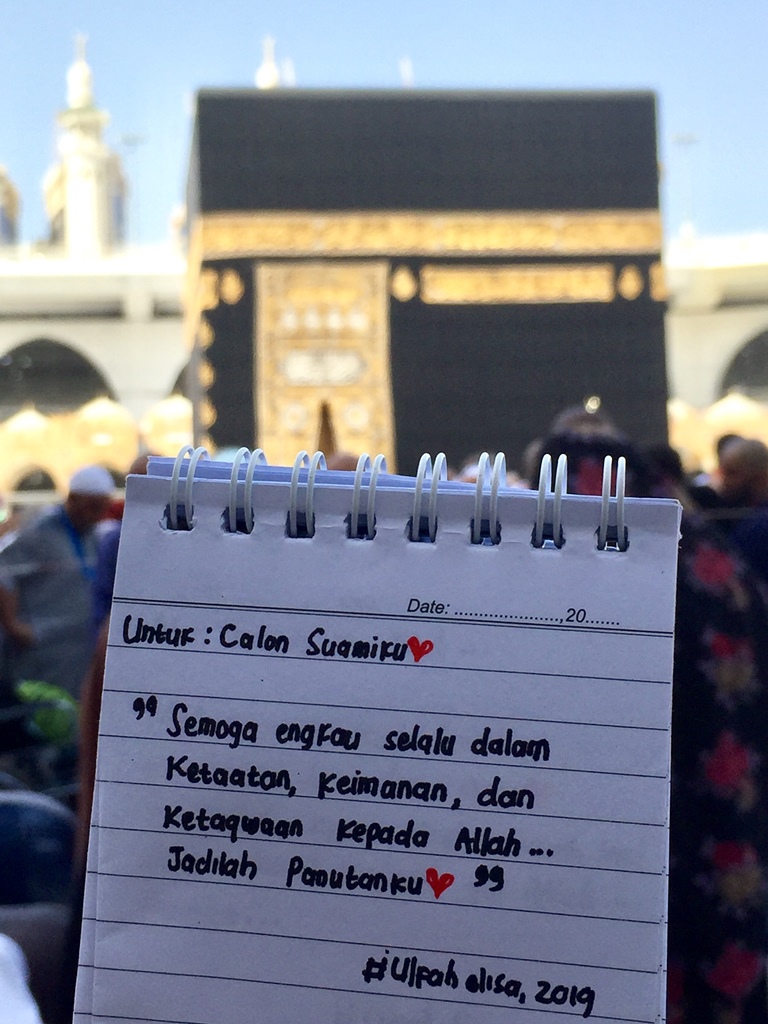 Date: ....................,20.......
Untuk : Calon Suamiku
" Semoga engkau selalu dalam
Ketaatan, Keimanan, dan
Ketaqwaan Kepada Allah...
Jadilah Panutanku "
#Ulfah elisa, 2019